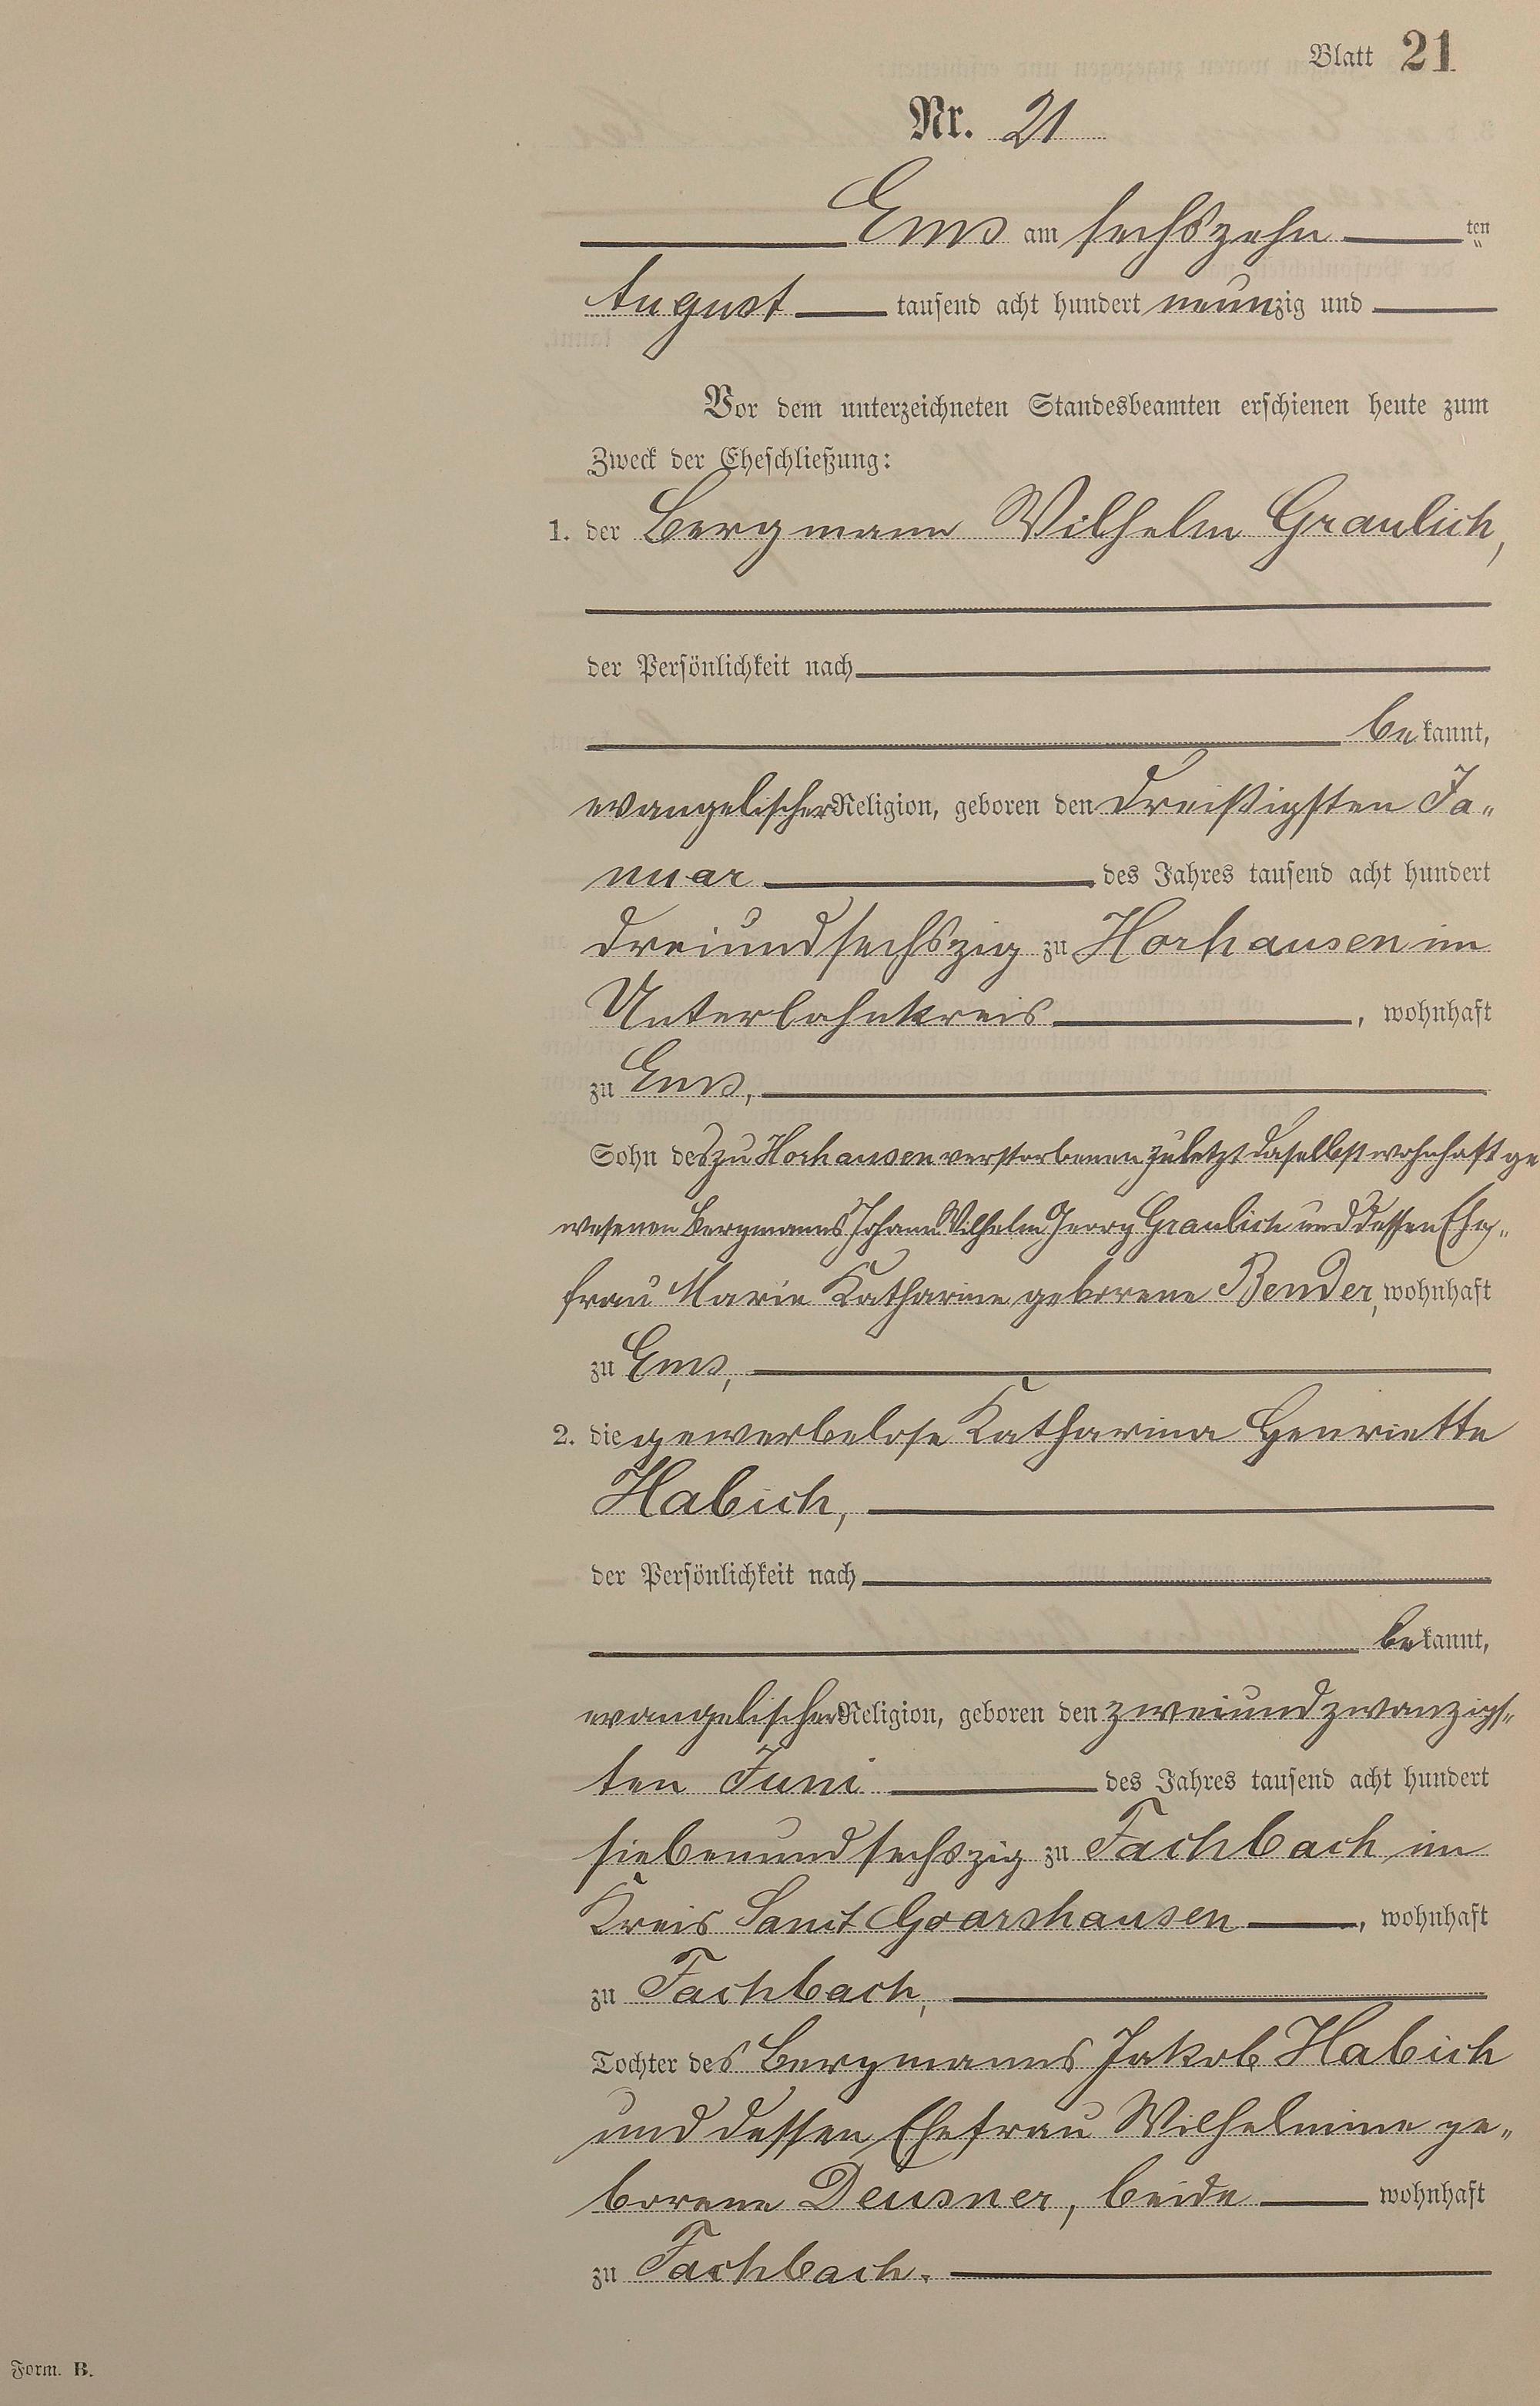 Blatt 21
Nr. 21
Ems am sechszehn ten
August tausend acht hundert neunzig und
Vor dem unterzeichneten Standesbeamten erschienen heute zum
Zweck der Eheschließung:
1. der Bergmann Wilhelm Graulich,
der Persönlichkeit nach
bekannt,
evangelischer Religion, geboren den dreißigsten Ja„
nuar des Jahres tausend acht hundert
dreiundsechszig zu Horhausen im
Unterlahnkreis, wohnhaft
zu Ems,
Sohn des zu Horhausen verstorbenen zuletzt daselbst wohnhaft ge
wesenen Bergmanns Johann Wilhelm Georg Graulich und dessen Ehe„
frau Marie Katharine geborene Bender, wohnhaft
zu Ems,
2. die gewerbelose Katharina Henriette
Habich,
der Persönlichkeit nach
bekannt,
evangelischer Religion, geboren den zweiundzwanzigs„
ten Juni des Jahres tausend acht hundert
siebenundsechszig zu Fachbach im
Kreis Sanct Goarshausen, wohnhaft
zu Fachbach,
Tochter des Bergmanns Jakob Habich
und dessen Ehefrau Wilhelmine ge„
borene Deusner, beide wohnhaft
zu Fachbach.
Form. B.